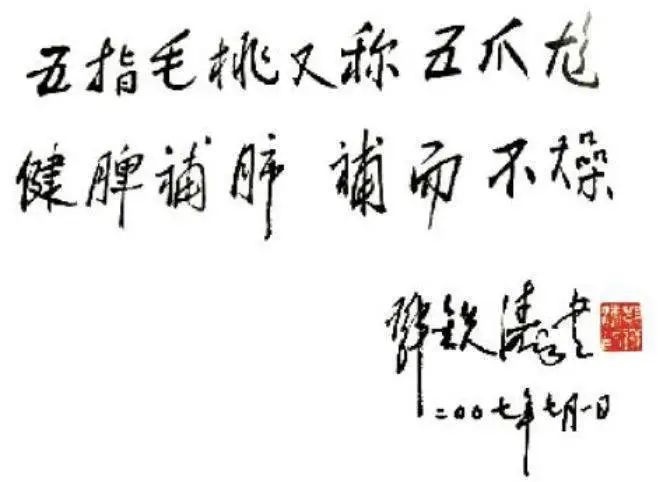 五指毛桃又称五爪龙
健脾補肺 補而不燥
鄧鉄濤書
二〇〇七年七月一日